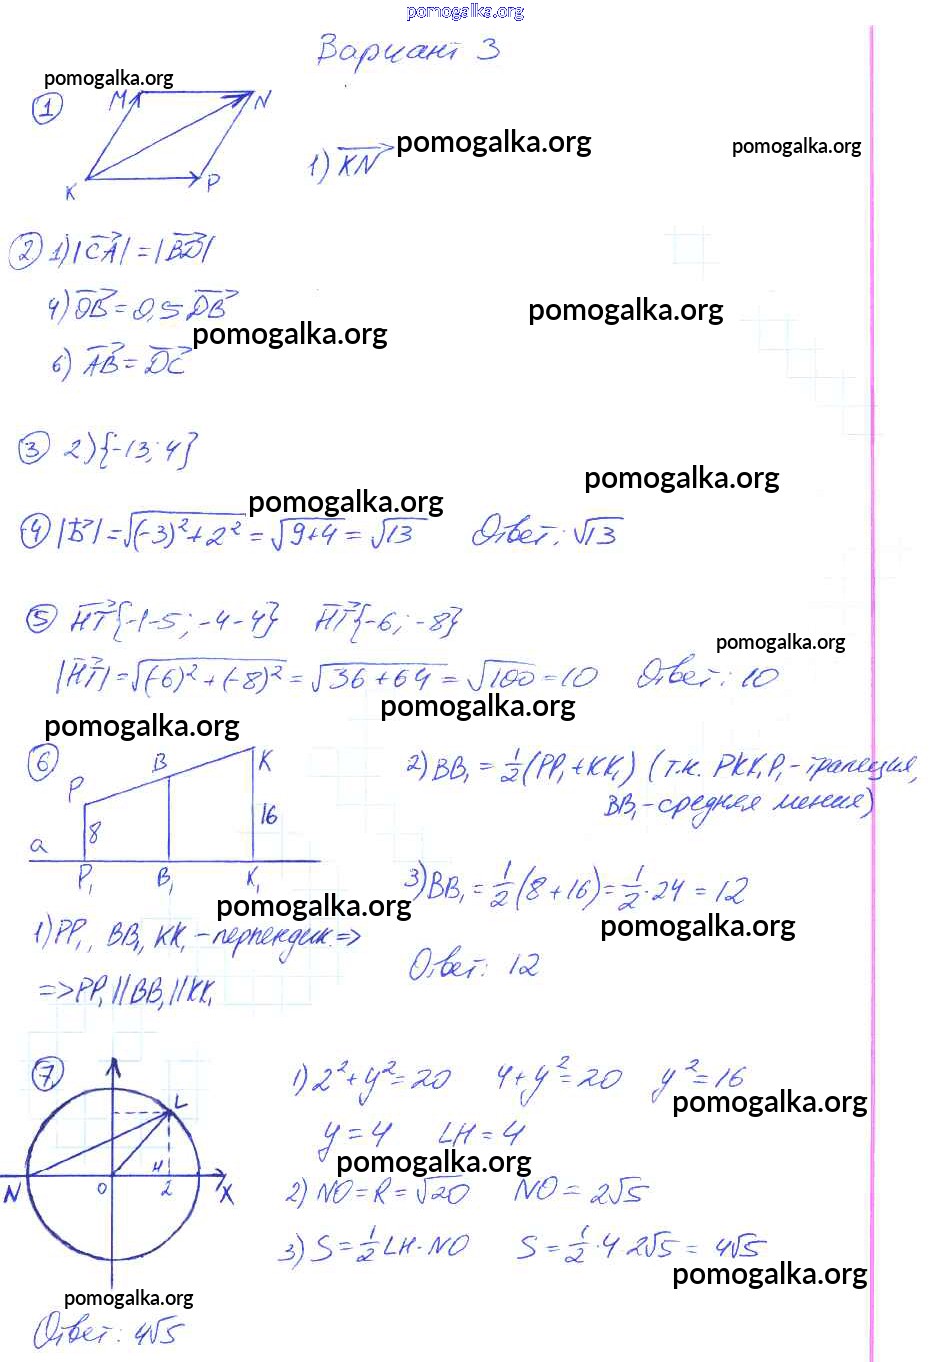 pomogalka.org
Вариант 3
pomogalka.org
1 M N K P
1) KN pomogalka.org pomogalka.org
2 1) |CA| = |BD|
4) OB = 0,5 DB
pomogalka.org pomogalka.org
6) AB = DC
3 2) {-13; 4}
pomogalka.org pomogalka.org
4 |b| = √(-3)² + 2² = √9+4 = √13 Ответ: √13
5 HT {-1-5; -4-4} HT {-6; -8}
pomogalka.org
|HT| = √(-6)² + (-8)² = √36 + 64 = √100 = 10 Ответ: 10
pomogalka.org pomogalka.org
6 P B K 8 16 a P₁ B₁ K₁
2) BB₁ = 1/2 (PP₁ + KK₁) (т.к. PKK₁P₁ - трапеция,
BB₁ - средняя линия)
3) BB₁ = 1/2 (8 + 16) = 1/2 · 24 = 12
pomogalka.org pomogalka.org
1) PP₁, BB₁, KK₁ - перпендик. =>
=> PP₁ || BB₁ || KK₁
Ответ: 12
7 L N O H 2 X
1) 2² + y² = 20 4 + y² = 20 y² = 16
pomogalka.org
y = 4 LH = 4
pomogalka.org
2) NO = R = √20 NO = 2√5
3) S = 1/2 LH · NO S = 1/2 · 4 2√5 = 4√5
pomogalka.org
pomogalka.org
Ответ: 4√5